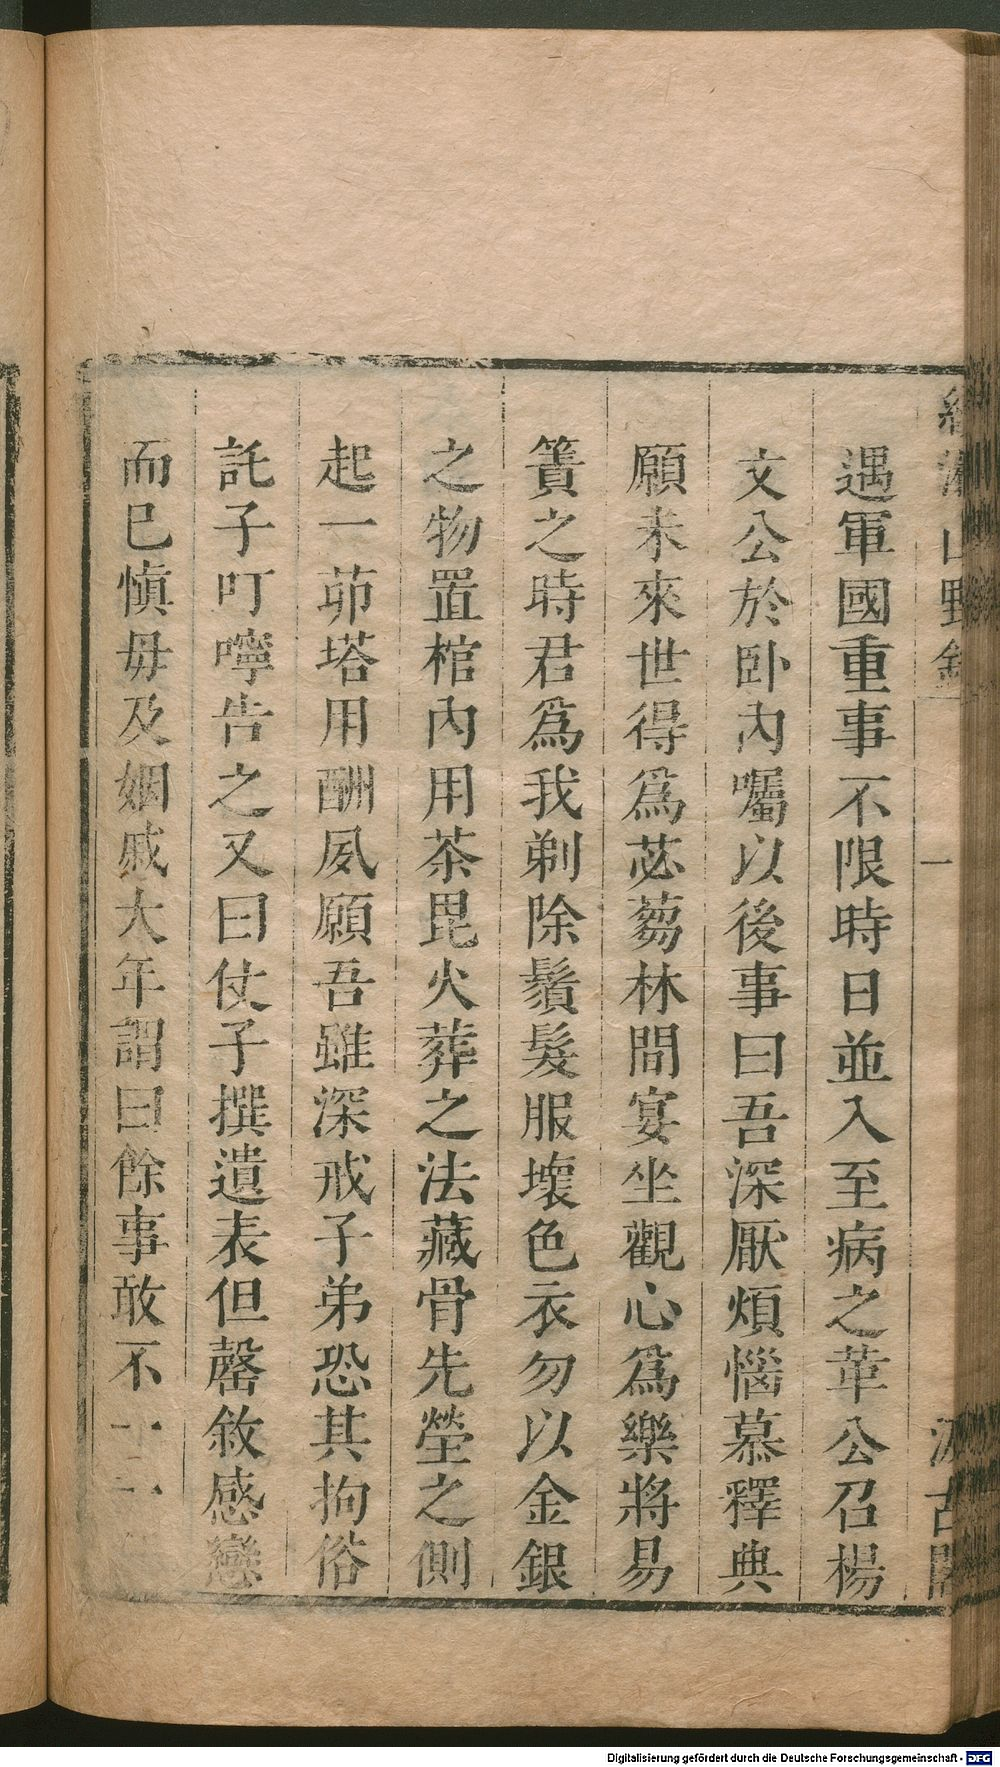 山野錄
一
古閣
遇軍國重事不限時日並入至病之革公召楊
文公於卧內囑以後事曰吾深厭煩惱慕釋典
願未來世得為苾蒭林間宴坐觀心為樂將易
簀之時君為我剃除鬚髮服壞色衣勿以金銀
之物置棺內用茶毘火葬之法藏骨先塋之側
起一茆塔用酬夙願吾雖深戒子弟恐其拘俗
託子叮嚀告之又曰仗子撰遺表但罄敘感戀
而已愼毋及姻戚大年謂曰餘事敢不一一
Digitalisierung gefördert durch die Deutsche Forschungsgemeinschaft - DFG